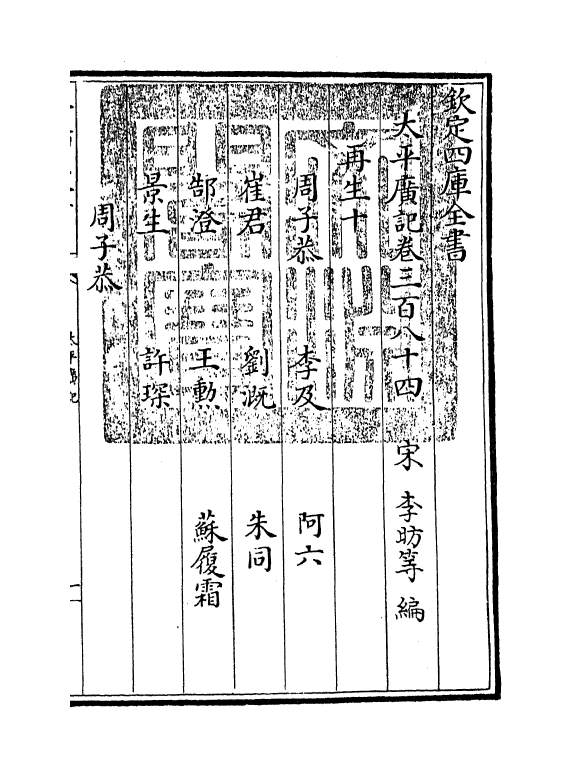 欽定四庫全書
太平廣記卷三百八十四 宋 李昉等 編
再生十
周子恭 李及 阿六
崔君 劉溉 朱同
郜澄 王勲 蘇履霜
景生 許琛
周子恭